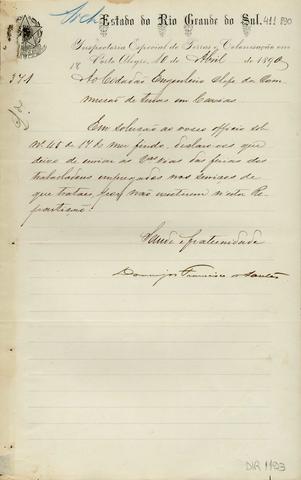 Arch
Estado do Rio Grande do Sul. 411 890
Inspectoria Especial de Terras e Colonisação em
Porto Alegre, 18 de Abril de 1890
18
371
Ao Cidadão Engenheiro Chefe da Com
missão de terras em Caxias
Em solução ao vosso officio sob
nº 45 de 17 do mez findo, declaro-vos que
deixo de enviar as das ferias dos
trabalhadores empregados nos serviços de
que trataes, por não existirem n'esta Re
partição.
Saude e fraternidade
Domingos Francisco dos Santos
DIR 1193